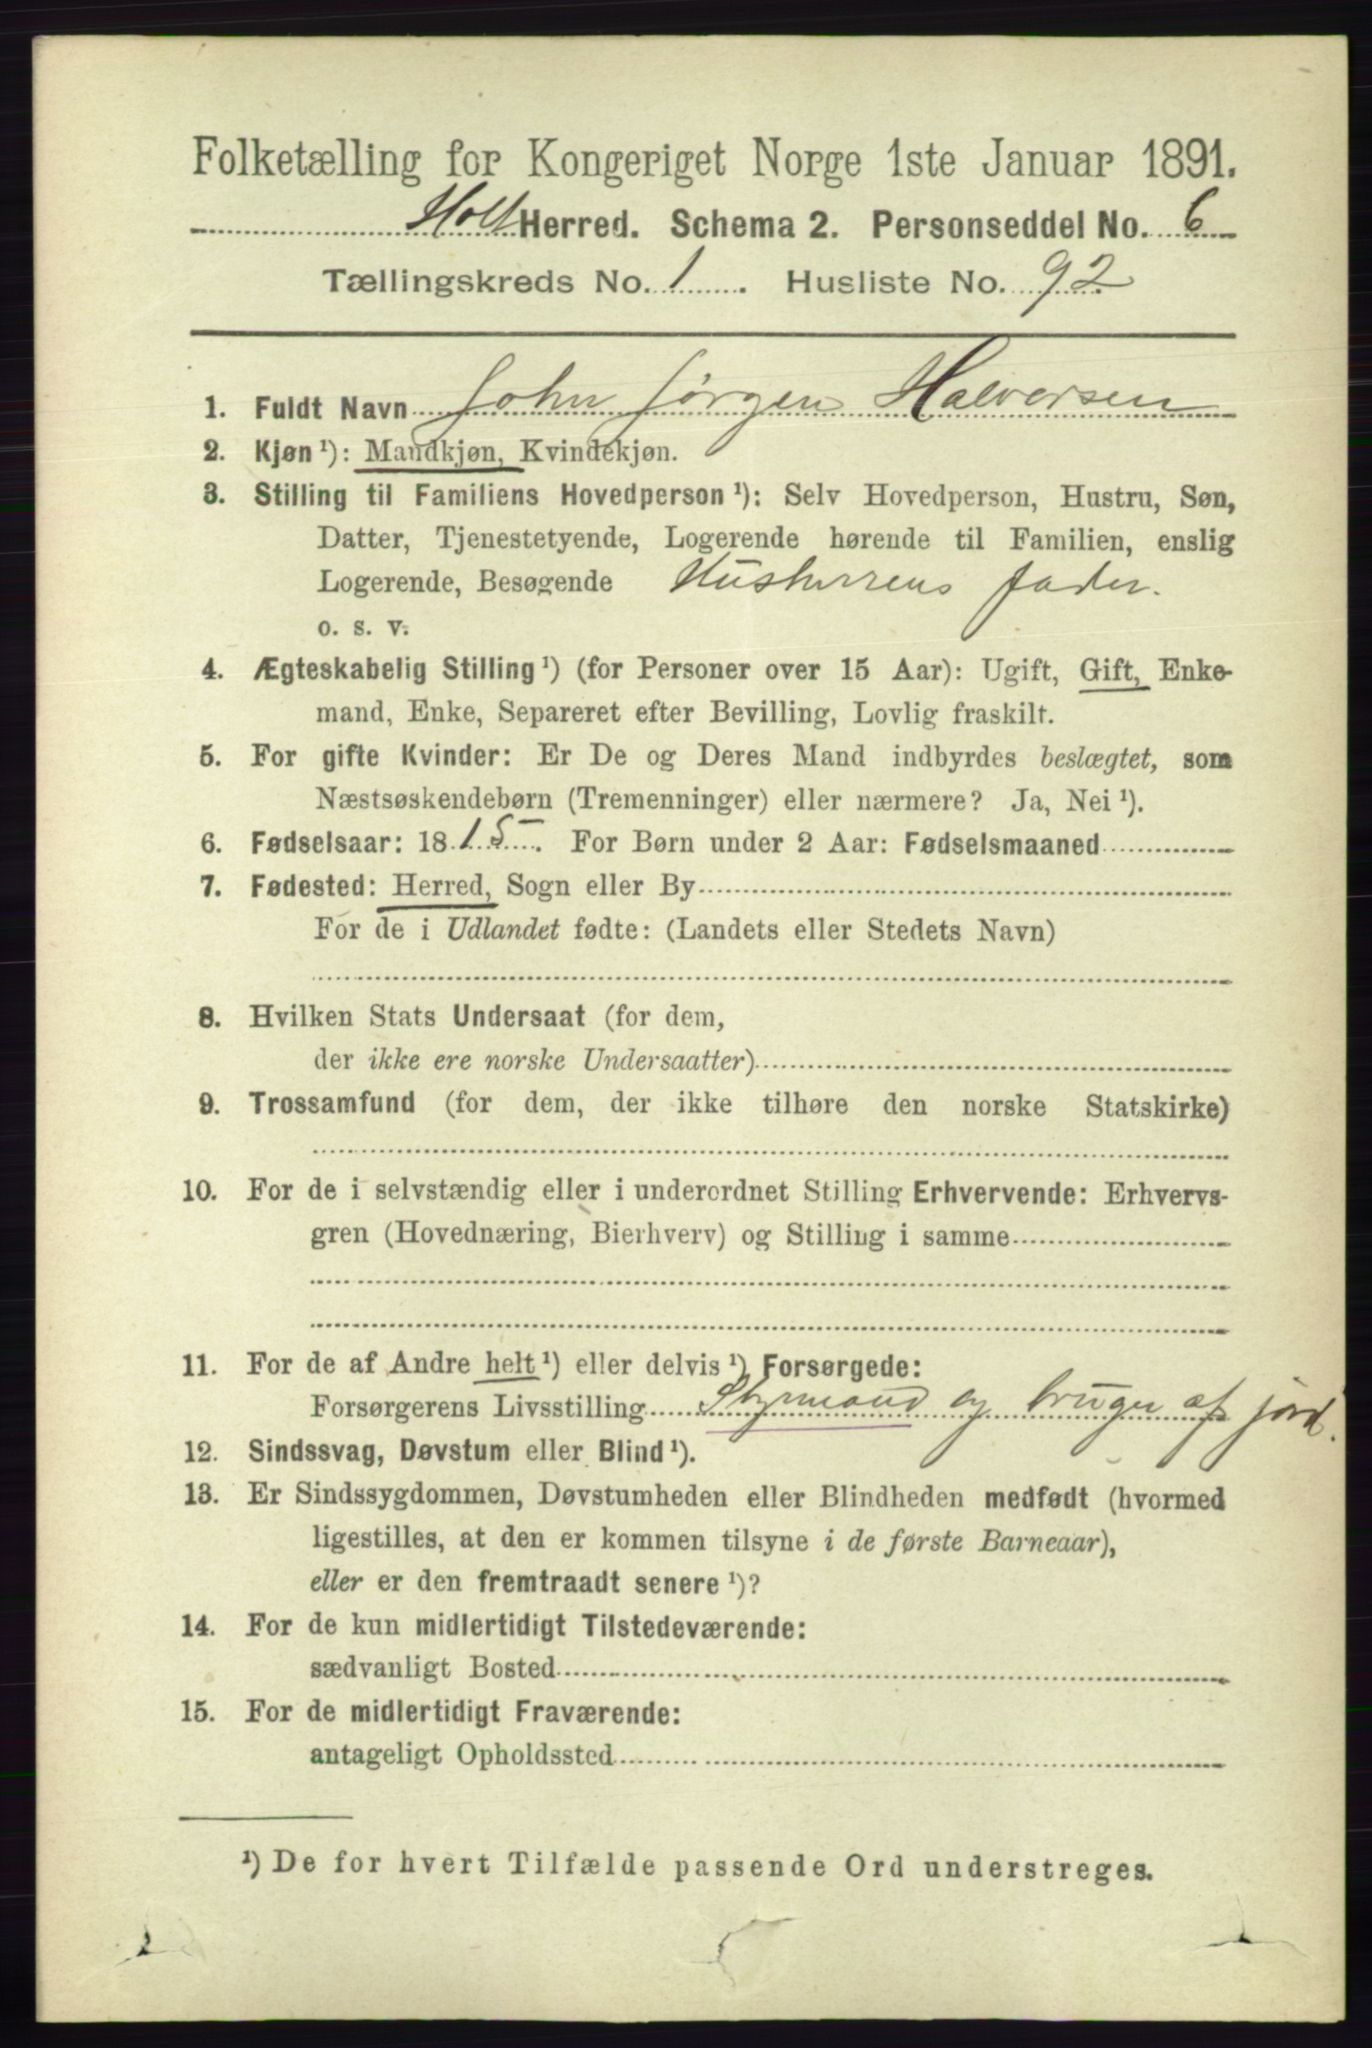 Folketælling for Kongeriget Norge 1ste Januar 1891.
Holt Herred. Schema 2. Personseddel No. 6
Tællingskreds No. 1. Husliste No. 92
1. Fuldt Navn John Jörgen Halversen
2. Kjøn ¹): Mandkjøn, Kvindekjøn.
3. Stilling til Familiens Hovedperson ¹): Selv Hovedperson, Hustru, Søn,
Datter, Tjenestetyende, Logerende hørende til Familien, enslig
Logerende, Besøgende Husherrens fader.
o. s. v.
4. Ægteskabelig Stilling ¹) (for Personer over 15 Aar): Ugift, Gift, Enke-
mand, Enke, Separeret efter Bevilling, Lovlig fraskilt.
5. For gifte Kvinder: Er De og Deres Mand indbyrdes beslægtet, som
Næstsøskendebørn (Tremenninger) eller nærmere? Ja, Nei ¹).
6. Fødselsaar: 1815. For Børn under 2 Aar: Fødselsmaaned
7. Fødested: Herred, Sogn eller By
For de i Udlandet fødte: (Landets eller Stedets Navn)
8. Hvilken Stats Undersaat (for dem,
der ikke ere norske Undersaatter)
9. Trossamfund (for dem, der ikke tilhøre den norske Statskirke)
10. For de i selvstændig eller i underordnet Stilling Erhvervende: Erhvervs-
gren (Hovednæring, Bierhverv) og Stilling i samme
11. For de af Andre helt ¹) eller delvis ¹) Forsørgede:
Forsørgerens Livsstilling Styrmand og bruger af jord.
12. Sindssvag, Døvstum eller Blind ¹).
13. Er Sindssygdommen, Døvstumheden eller Blindheden medfødt (hvormed
ligestilles, at den er kommen tilsyne i de første Barneaar),
eller er den fremtraadt senere ¹)?
14. For de kun midlertidigt Tilstedeværende:
sædvanligt Bosted
15. For de midlertidigt Fraværende:
antageligt Opholdssted
¹) De for hvert Tilfælde passende Ord understreges.